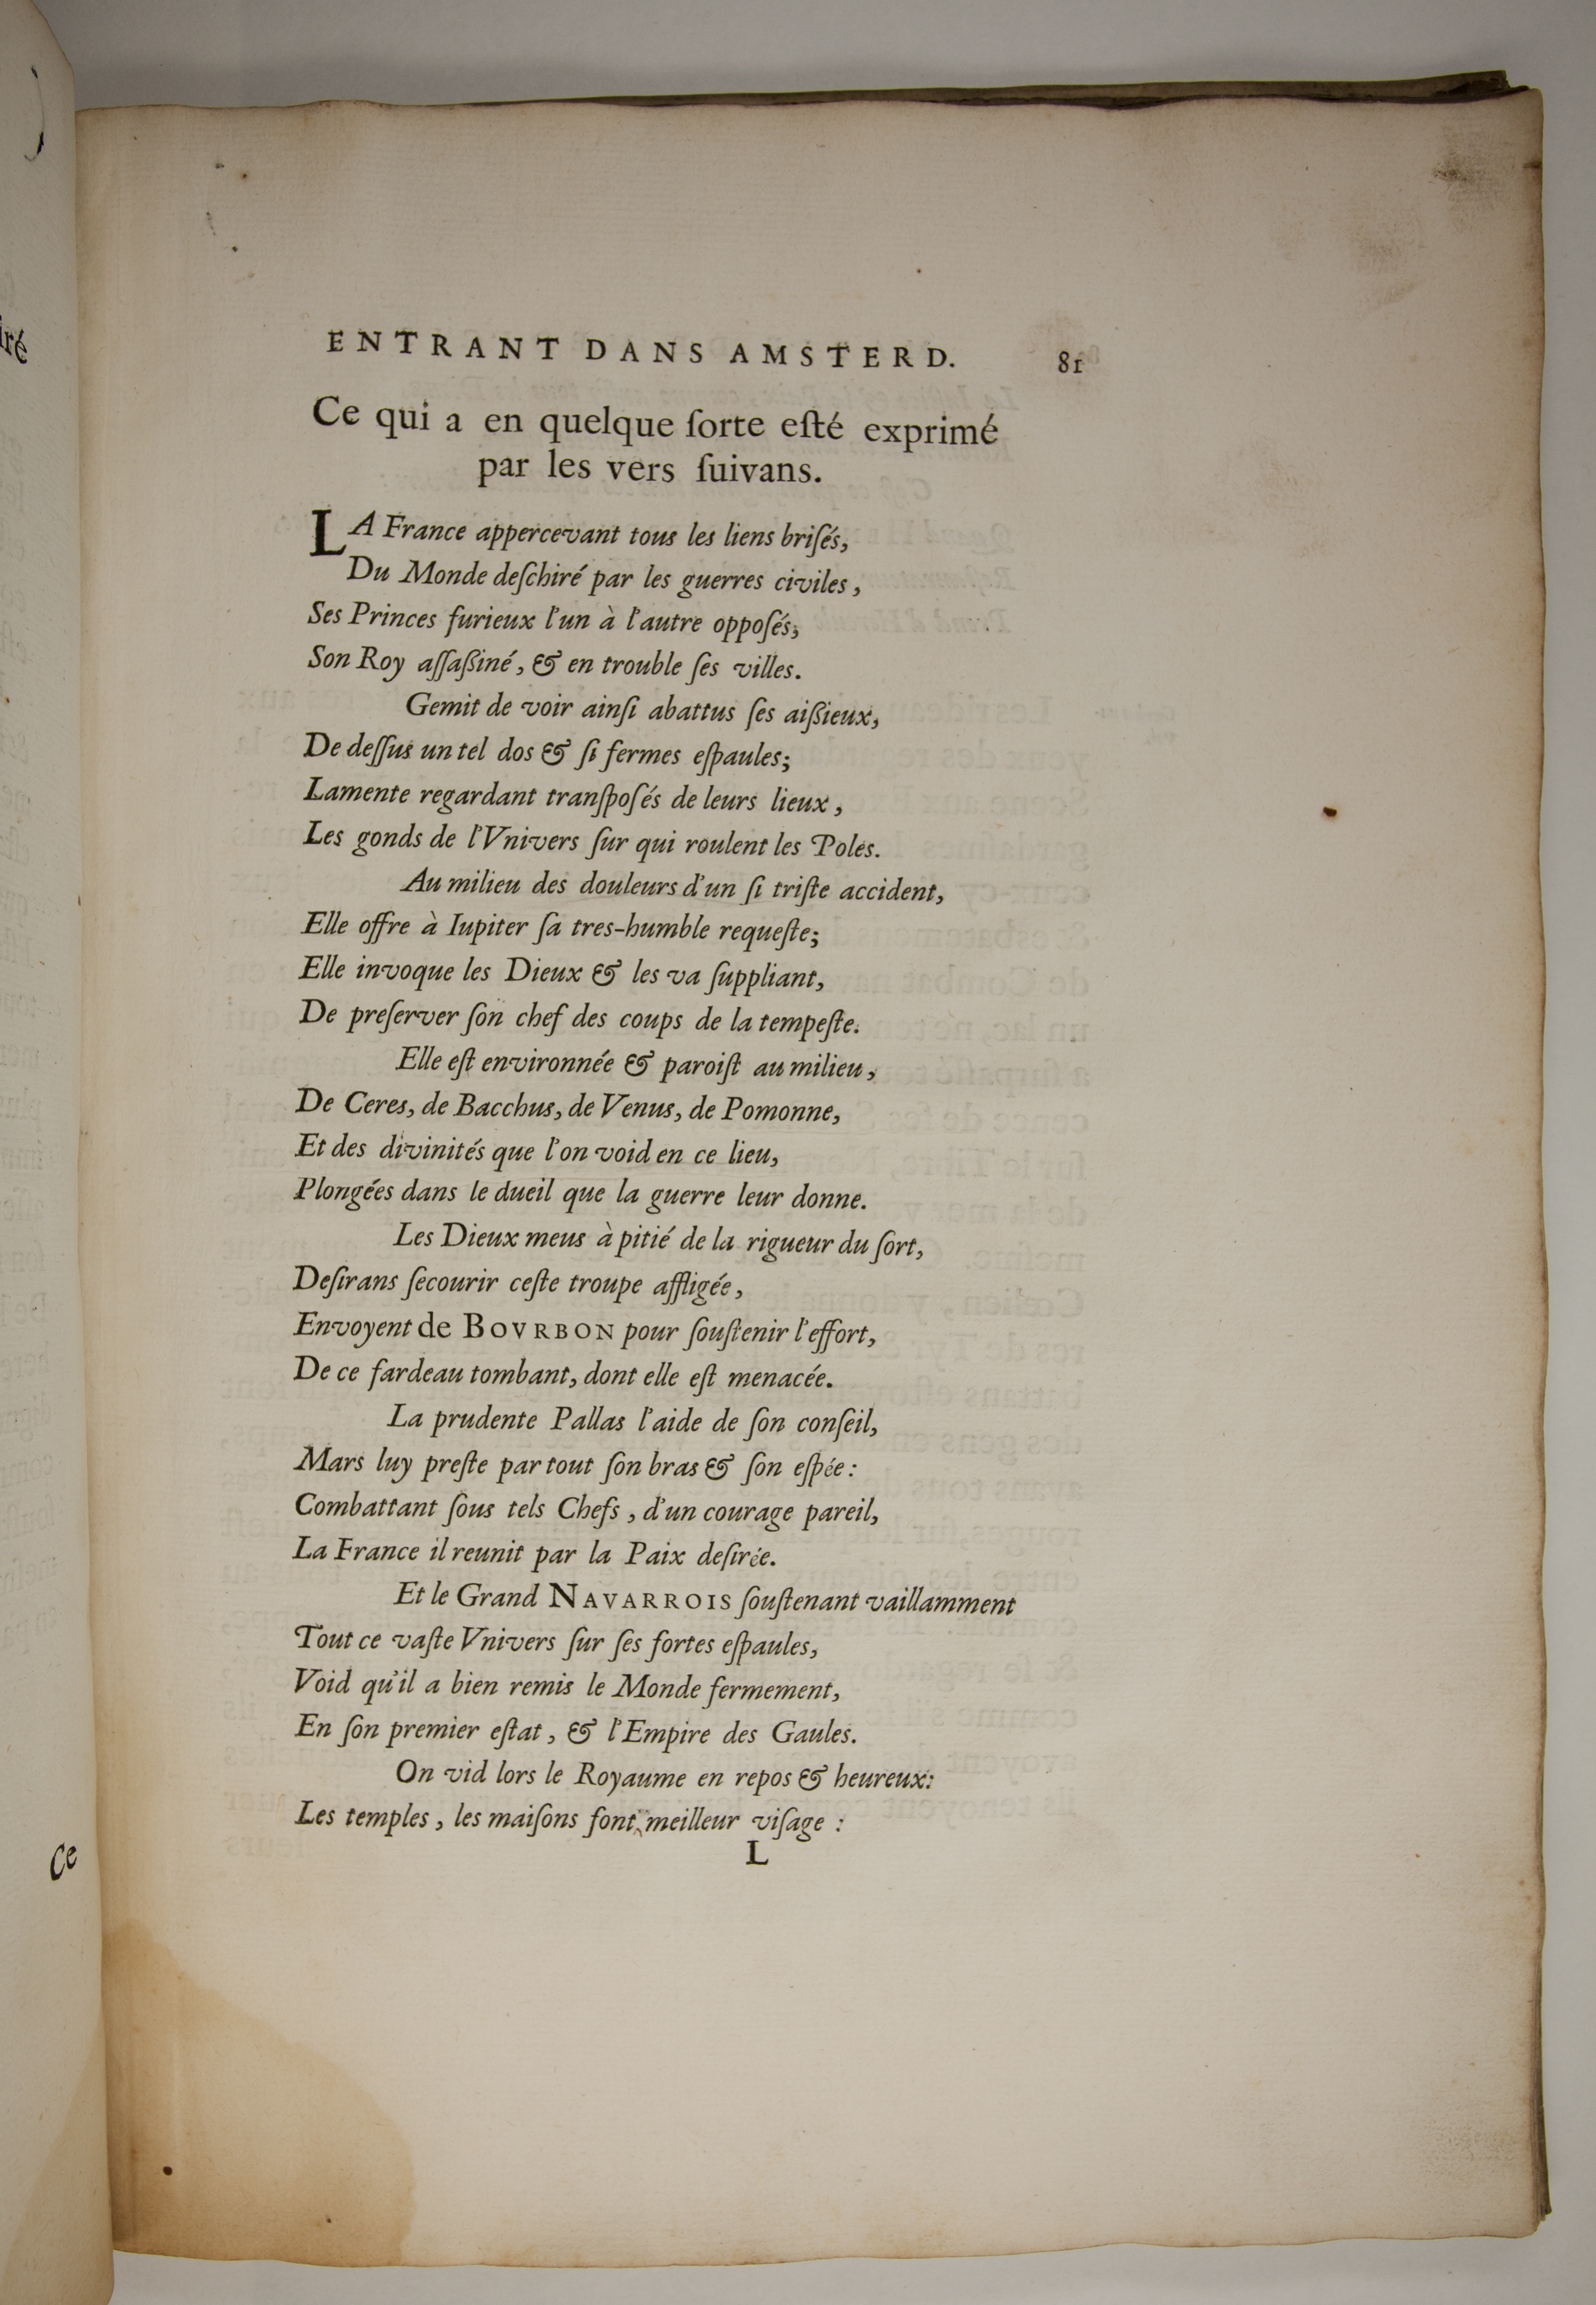 ENTRANT DANS AMSTERD. 81
Ce qui a en quelque ſorte eſté exprimé
par les vers ſuivans.
LA France appercevant tous les liens briſés,
Du Monde deſchiré par les guerres civiles,
Ses Princes furieux l'un à l'autre oppoſés;
Son Roy aſſaßiné, & en trouble ſes villes.
Gemit de voir ainſi abattus ſes aißieux,
De deſſus un tel dos & ſi fermes eſpaules;
Lamente regardant tranſpoſés de leurs lieux,
Les gonds de l'Vnivers ſur qui roulent les Poles.
Au milieu des douleurs d'un ſi triſte accident,
Elle offre à Iupiter ſa tres-humble requeſte;
Elle invoque les Dieux & les va ſuppliant,
De preſerver ſon chef des coups de la tempeſte.
Elle eſt environnée & paroiſt au milieu,
De Ceres, de Bacchus, de Venus, de Pomonne,
Et des divinités que l'on void en ce lieu,
Plongées dans le dueil que la guerre leur donne.
Les Dieux meus à pitié de la rigueur du ſort,
Deſirans ſecourir ceſte troupe affligée,
Envoyent de BOVRBON pour ſouſtenir l'effort,
De ce fardeau tombant, dont elle eſt menacée.
La prudente Pallas l'aide de ſon conſeil,
Mars luy preſte par tout ſon bras & ſon eſpée:
Combattant ſous tels Chefs, d'un courage pareil,
La France il reunit par la Paix deſirée.
Et le Grand NAVARROIS ſouſtenant vaillamment
Tout ce vaſte Vnivers ſur ſes fortes eſpaules,
Void qu'il a bien remis le Monde fermement,
En ſon premier eſtat, & l'Empire des Gaules.
On vid lors le Royaume en repos & heureux:
Les temples, les maiſons font meilleur viſage:
L
iré
Ce